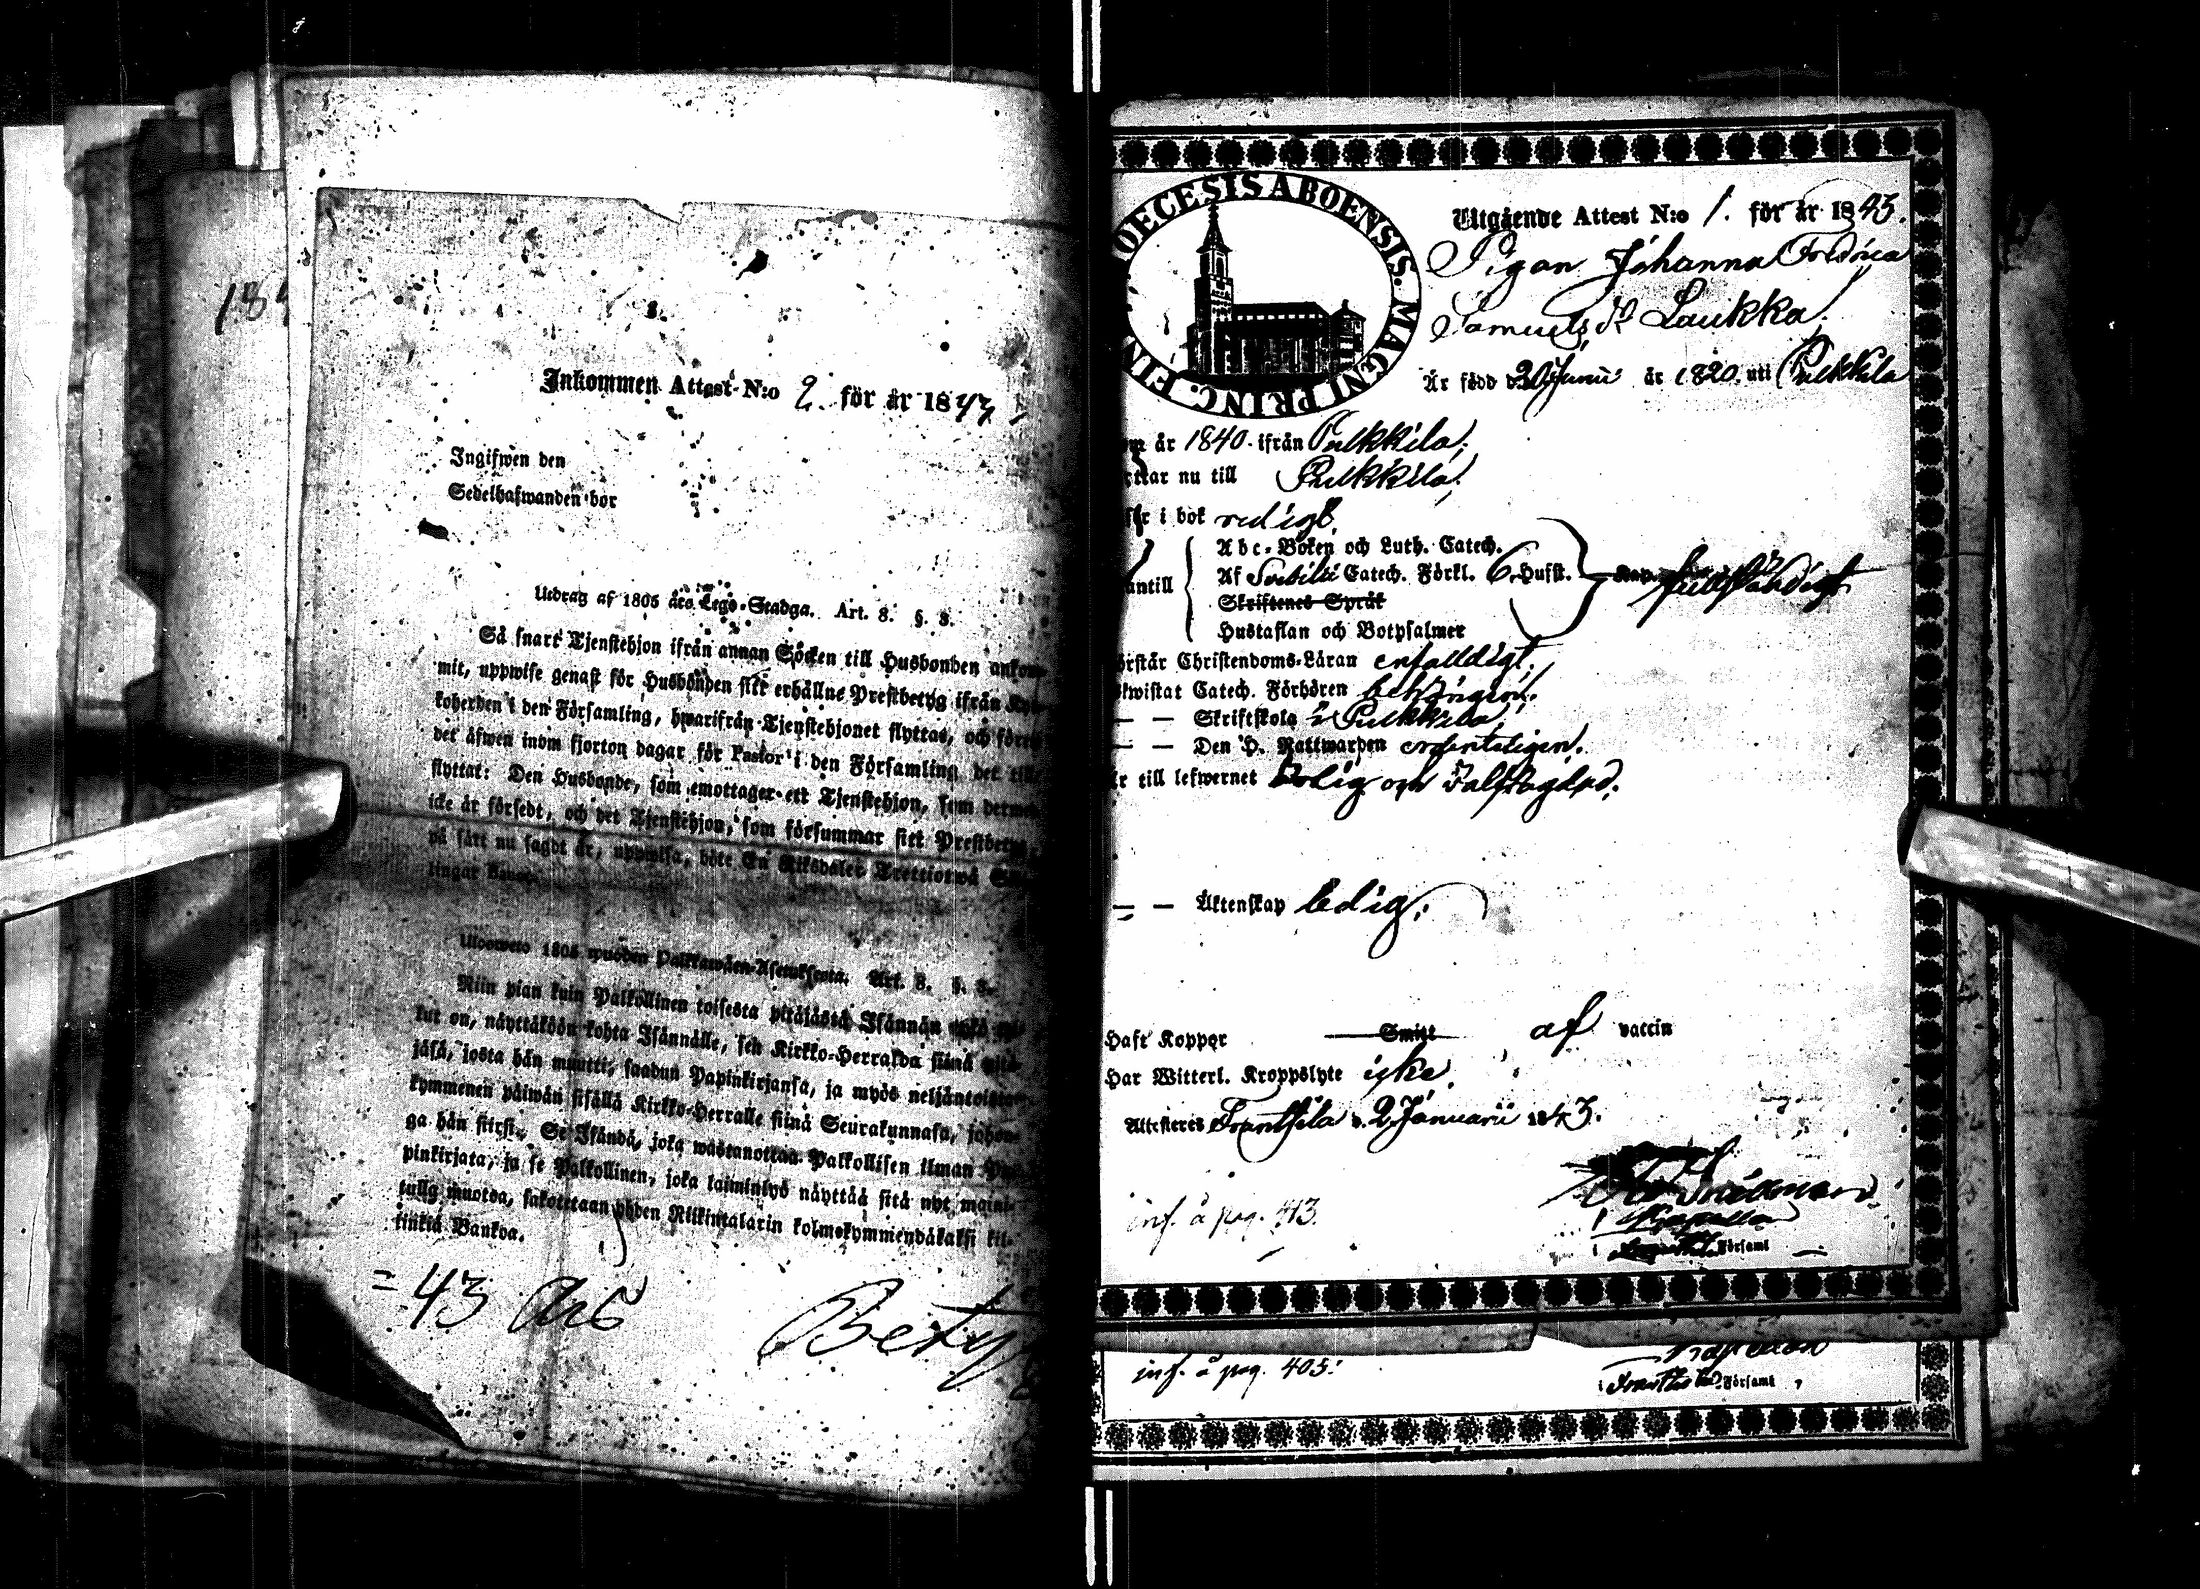 184
Inkommen Attest N:o 2. för år 1843
Ingifwen den
Sedelhafwanden bör
Utdrag af 1805 års Lego-Stadga. Art. 8. §. 3.
Så snart Tjenstehjon ifrån annan Socken till Husbonden ankom-
mit, uppwise genast för Husbonden sitt erhållne Prestbetyg ifrån
koherden i den Församling, hwarifrån Tjenstehjonet flyttat, och
det äfwen inom fjorton dagar för Pastor i den Församling det till
flyttat: Den Husbonde, som emottager ett Tjenstehjon, som
icke är försedt, och det Tjenstehjon, som försummar sitt Prestbetyg,
på sätt nu sagdt är, uppwisa, böte En Riksdaler Trettiotwå
lingar Banco.
Ulosweto 1805 wuoden Palkkawäen-Asetuksesta. Art. 8. §. 3.
Niin pian kuin Palkollinen toisesta pitäjästä Isännän
tut on, näyttäköön kohta Isännälle, sen Kirkko-Herralda siinä pitä-
jäsä, josta hän muutti, saadun Papinkirjansa, ja myös neljäntoista-
kymmenen päiwän sisällä Kirkko-Herralle siinä Seurakunnasa, johon-
ga hän siirsi. Se Isändä, joka wastanottaa Palkollisen ilman Pa-
pinkirjata, ja se Palkollinen, joka laiminlyö näyttää sitä nyt maini-
tulla muotoa, sakotetaan yhden Riikintalarin kolmekymmendäkaksi kil-
linkiä Bankoa.
= 43 års
Betyg
DIOECESIS ABOENSIS. MAGNI PRINC. FIN
Utgående Attest N:o 1. för år 1843.
Pigan Johanna Fredrica
Samuels dr Laukka.
Är född d. 20 Junii år 1820. uti Pulkkila
om år 1840. ifrån Pulkkila;
ttar nu till Pulkkila;
i bok redigt.
Abc-Boken och Luth. Catech.
antill Af Svebilii Catech. Förkl. 6. Husst. Kap. fullständigt
Skriftenes Språk
Hustaflan och Botpsalmer
örstår Christendoms-Läran enfalldigt.
wistat Catech. Förhören behörigen.
— — Skriftskola i Pulkkila;
— — Den H. Nattwarden ordenteligen.
r till lefwernet ledig och välfrägdad.
— — Äktenskap ledig;
Haft Koppor Smitt af vaccin
Har Witterl. Kroppslyte icke.
Attesteres Frantsila d. 2 Januarii 1843.
Kapellan
i Församl
inf. å pag. 413.
inf. å pag. 405.
Kapellan
i Frantsila Församl